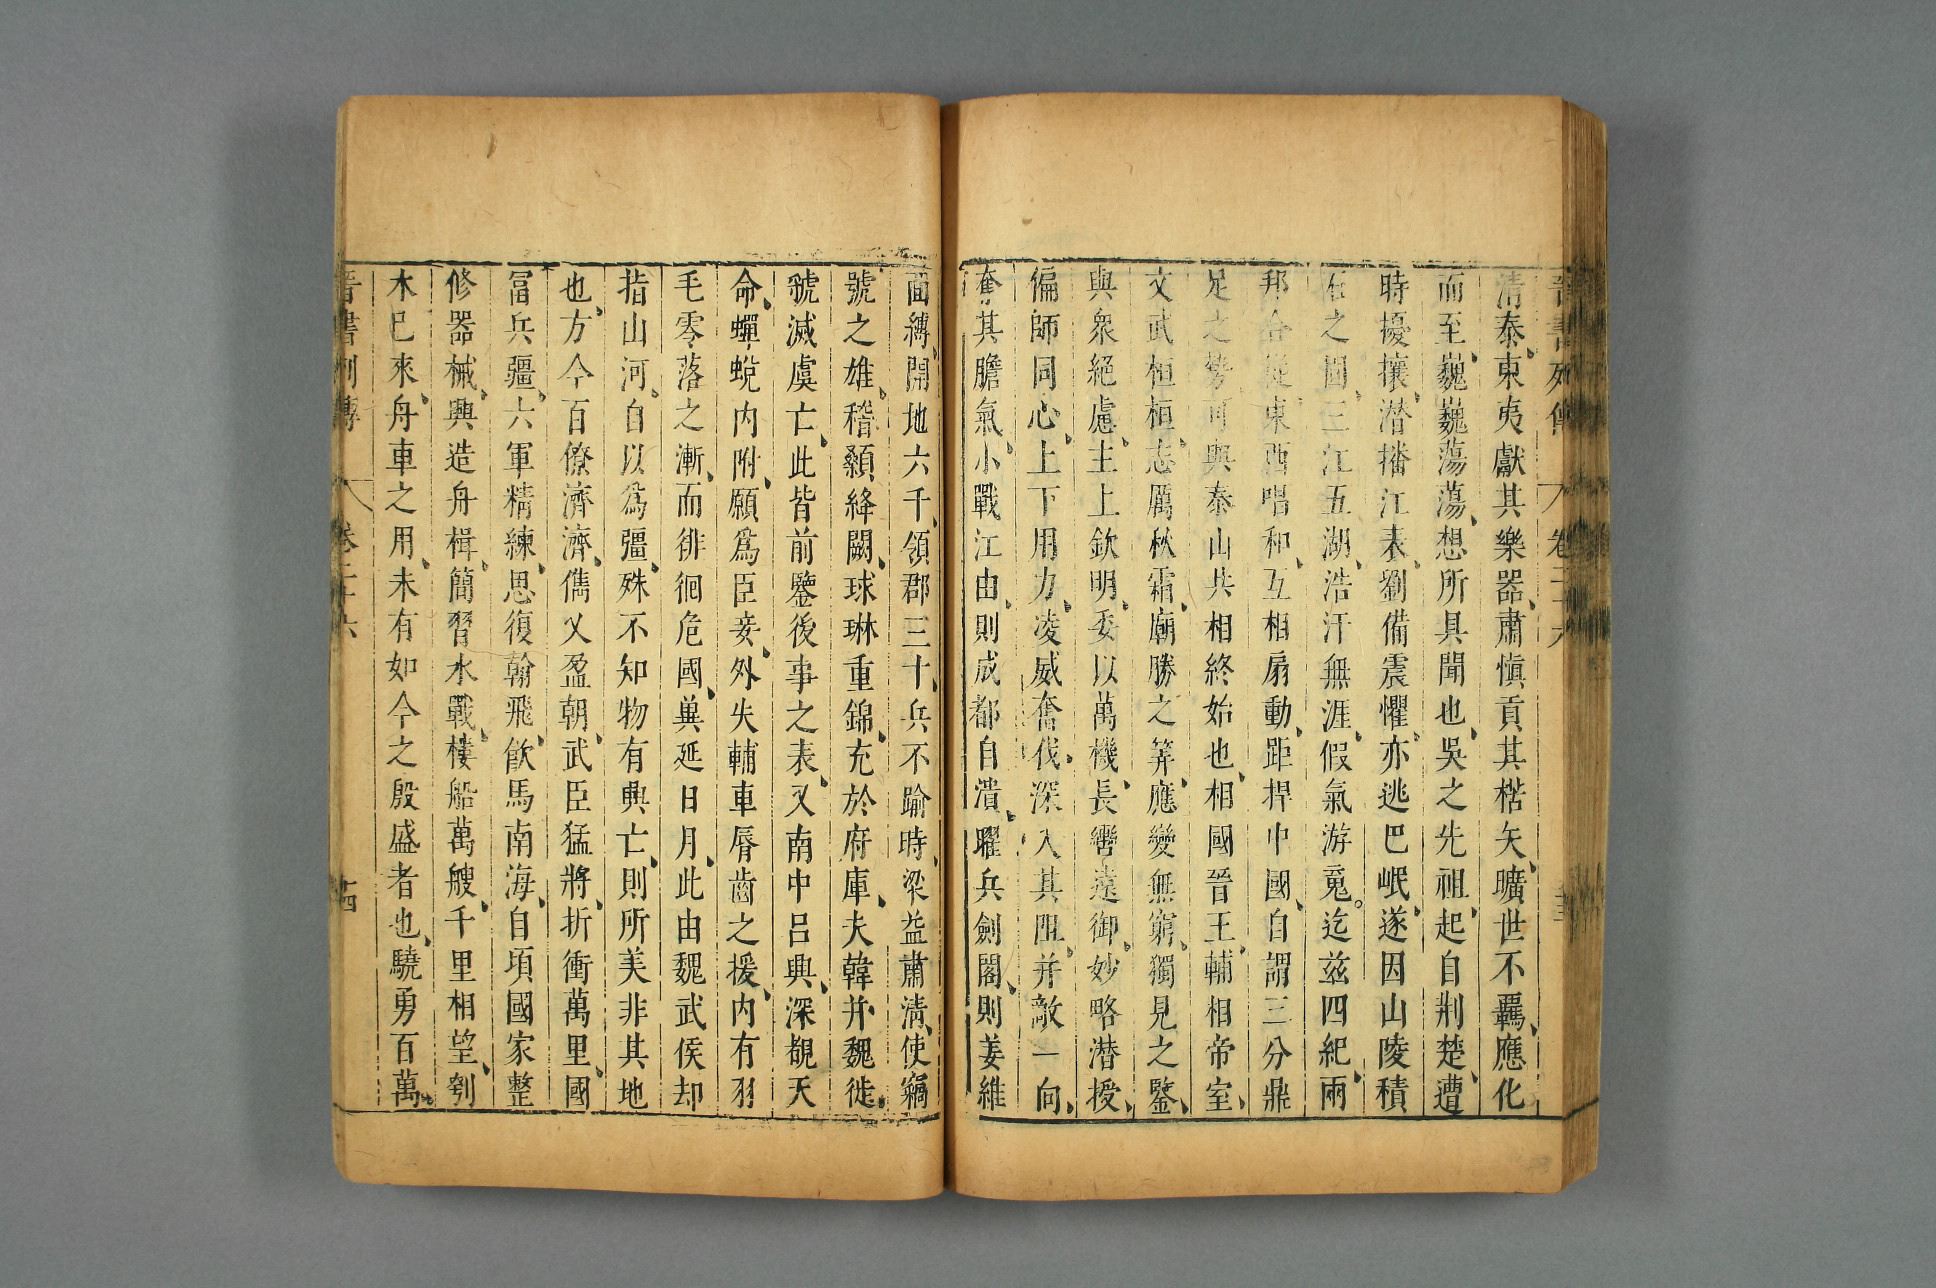 晉書列傳 卷二十六 十三
清泰東夷獻其樂器肅慎貢其楛矢曠世不羈應化
而至巍巍蕩蕩想所具聞也吳之先祖起自荆楚遭
時擾攘潜播江表劉備震懼亦逃巴岷遂因山陵積
石之固三江五湖浩汗無涯假氣游䰟迄茲四紀兩
邦合從東西唱和互相扇動距捍中國自謂三分鼎
足之勢可與泰山共相終始也相國晉王輔相帝室
文武桓桓志厲秋霜廟勝之筭應變無窮獨見之鑒
與衆絕慮主上欽明委以萬機長轡遠御妙略潜授
偏師同心上下用力凌威奮伐深入其阻并敵一向
奪其膽氣小戰江由則成都自潰曜兵劍閣則姜維
面縛開地六千領郡三十兵不踰時梁益肅清使竊
號之雄稽顙絳闕球琳重錦充於府庫夫韓并魏徙
虢滅虞亡此皆前鑒後事之表又南中呂興深覩天
命蟬蛻内附願爲臣妾外失輔車脣齒之援内有羽
毛零落之漸而徘徊危國兾延日月此由魏武侯却
指山河自以爲疆殊不知物有興亡則所美非其地
也方今百僚濟濟儁乂盈朝武臣猛將折衝萬里國
冨兵疆六軍精練思復翰飛飮馬南海自項國家整
修器械興造舟楫簡習水戰樓船萬艘千里相望刳
木巳來舟車之用未有如今之殷盛者也驍勇百萬
晉書列傳 卷二十六 十四